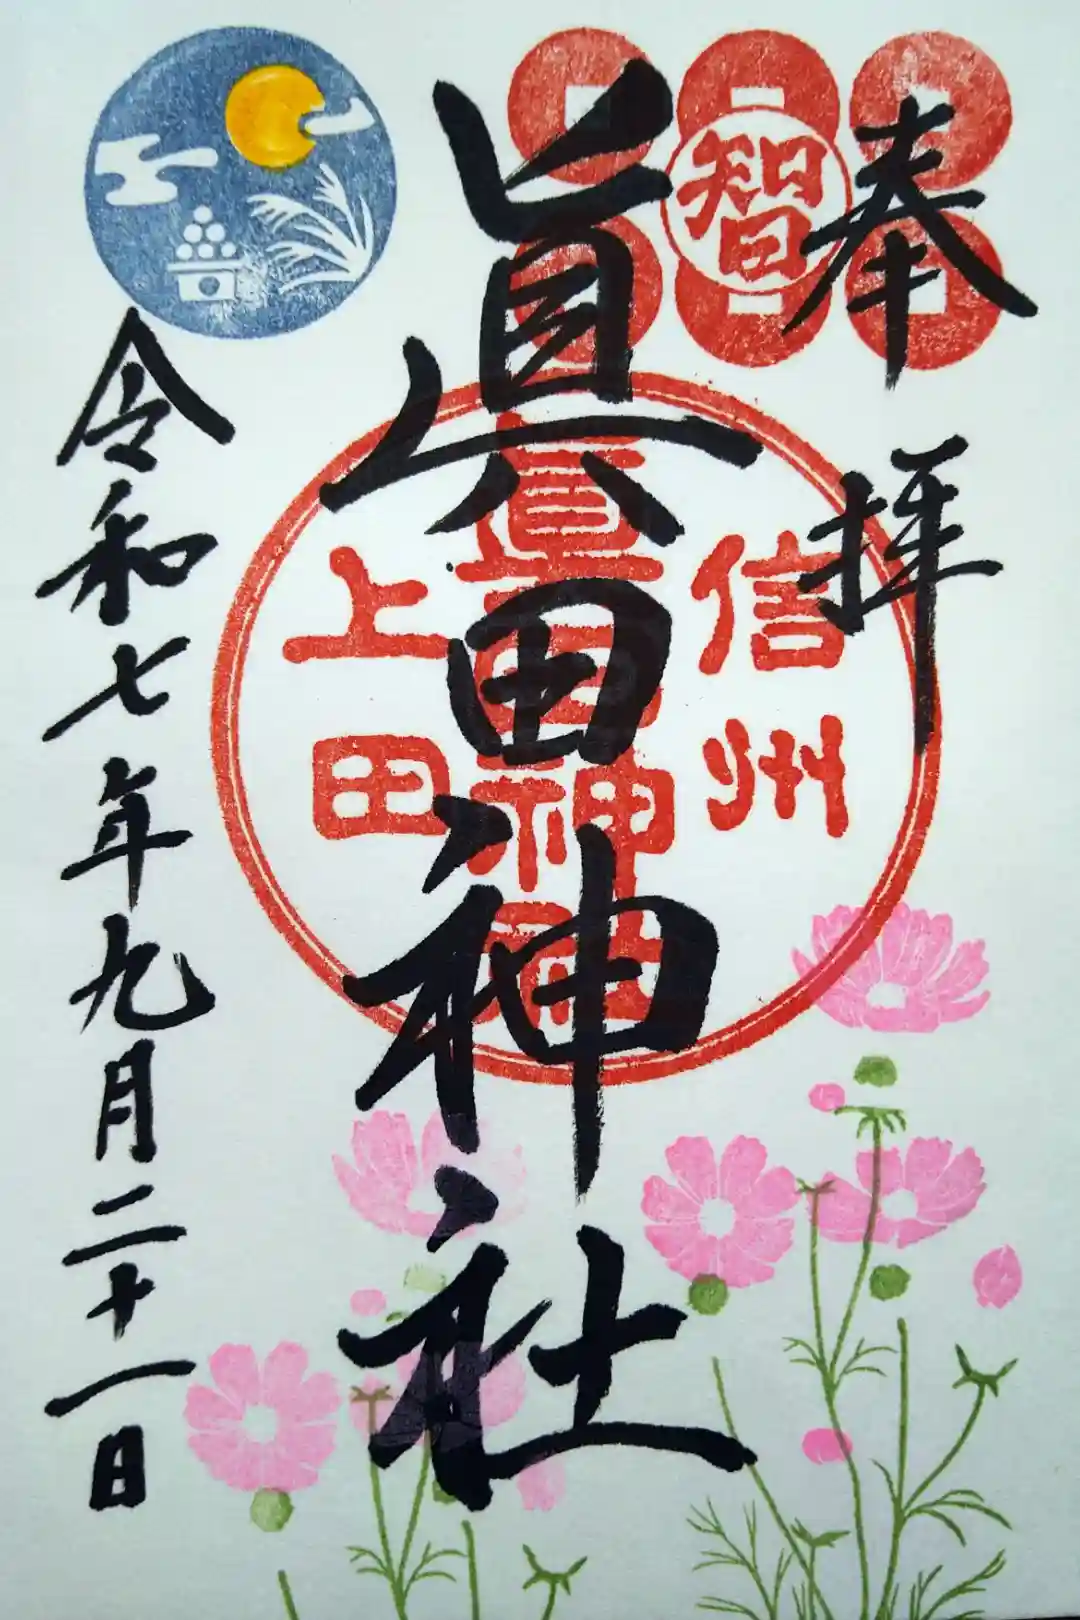 奉拝
智
信州
眞田神社
眞田神社
上田
令和七年九月二十一日